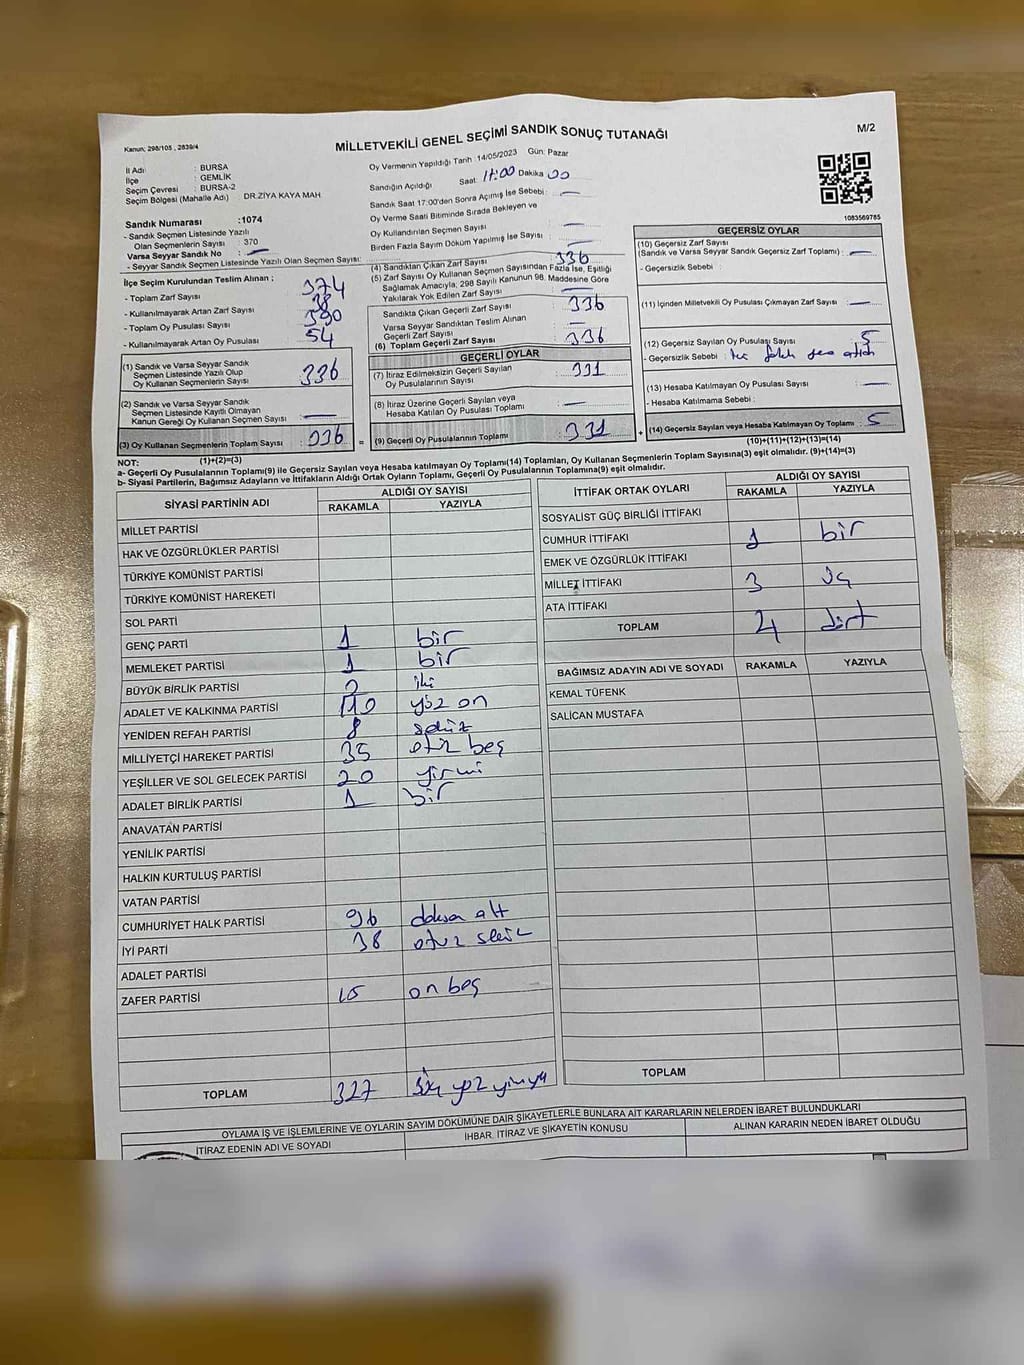 Kanun; 298/105 , 2839/4
MİLLETVEKİLİ GENEL SEÇİMİ SANDIK SONUÇ TUTANAĞI
M/2
İl Adı : BURSA
İlçe : GEMLİK
Seçim Çevresi : BURSA-2
Seçim Bölgesi (Mahalle Adı) DR.ZİYA KAYA MAH
Sandık Numarası :1074
- Sandık Seçmen Listesinde Yazılı
Olan Seçmenlerin Sayısı : 370
Varsa Seyyar Sandık No : —
- Seyyar Sandık Seçmen Listesinde Yazılı Olan Seçmen Sayısı:
Oy Vermenin Yapıldığı Tarih :14/05/2023 Gün: Pazar
Sandığın Açıldığı Saat: 17:00 Dakika 00
Sandık Saat 17:00'den Sonra Açımış İse Sebebi: —
Oy Verme Saati Bitiminde Sırada Bekleyen ve
Oy Kullandırılan Seçmen Sayısı : —
Birden Fazla Sayım Döküm Yapılmış İse Sayısı : —
1083569785
İlçe Seçim Kurulundan Teslim Alınan ;
- Toplam Zarf Sayısı : 374
- Kullanılmayarak Artan Zarf Sayısı : 38
- Toplam Oy Pusulası Sayısı : 390
- Kullanılmayarak Artan Oy Pusulası : 54
(1) Sandık ve Varsa Seyyar Sandık
Seçmen Listesinde Yazılı Olup
Oy Kullanan Seçmenlerin Sayısı : 336
(2) Sandık ve Varsa Seyyar Sandık
Seçmen Listesinde Kayıtlı Olmayan
Kanun Gereği Oy Kullanan Seçmen Sayısı : —
(3) Oy Kullanan Seçmenlerin Toplam Sayısı : 336
(1)+(2)=(3)
(4) Sandıktan Çıkan Zarf Sayısı : 336
(5) Zarf Sayısı Oy Kullanan Seçmen Sayısından Fazla İse, Eşitliği
Sağlamak Amacıyla; 298 Sayılı Kanunun 98. Maddesine Göre
Yakılarak Yok Edilen Zarf Sayısı : —
Sandıkta Çıkan Geçerli Zarf Sayısı : 336
Varsa Seyyar Sandıktan Teslim Alınan
Geçerli Zarf Sayısı : —
(6) Toplam Geçerli Zarf Sayısı : 336
GEÇERLİ OYLAR
(7) İtiraz Edilmeksizin Geçerli Sayılan
Oy Pusulalarının Sayısı : 331
(8) İtiraz Üzerine Geçerli Sayılan veya
Hesaba Katılan Oy Pusulası Toplamı : —
= (9) Geçerli Oy Pusulalarının Toplamı : 331
GEÇERSİZ OYLAR
(10) Geçersiz Zarf Sayısı
(Sandık ve Varsa Sandık Geçersiz Zarf Toplamı) : —
- Geçersizlik Sebebi :
(11) İçinden Milletvekili Oy Pusulası Çıkmayan Zarf Sayısı : —
(12) Geçersiz Sayılan Oy Pusulası Sayısı : 5
- Geçersizlik Sebebi :
(13) Hesaba Katılmayan Oy Pusulası Sayısı : —
- Hesaba Katılmama Sebebi :
+ (14) Geçersiz Sayılan veya Hesaba Katılmayan Oy Toplamı : 5
(10)+(11)+(12)+(13)=(14)
NOT:
a- Geçerli Oy Pusulalarının Toplamı(9) ile Geçersiz Sayılan veya Hesaba katılmayan Oy Toplamı(14) Toplamları, Oy Kullanan Seçmenlerin Toplam Sayısına(3) eşit olmalıdır. (9)+(14)=(3)
b- Siyasi Partilerin, Bağımsız Adayların ve İttifakların Aldığı Ortak Oyların Toplamı, Geçerli Oy Pusulalarının Toplamına(9) eşit olmalıdır.
SİYASİ PARTİNİN ADI ALDIĞI OY SAYISI
RAKAMLA YAZIYLA
MİLLET PARTİSİ
HAK VE ÖZGÜRLÜKLER PARTİSİ
TÜRKİYE KOMÜNİST PARTİSİ
TÜRKİYE KOMÜNİST HAREKETİ
SOL PARTİ
GENÇ PARTİ 1 bir
MEMLEKET PARTİSİ 1 bir
BÜYÜK BİRLİK PARTİSİ 2 iki
ADALET VE KALKINMA PARTİSİ 110 yüz on
YENİDEN REFAH PARTİSİ 8 sekiz
MİLLİYETÇİ HAREKET PARTİSİ 35 otuz beş
YEŞİLLER VE SOL GELECEK PARTİSİ 20 yirmi
ADALET BİRLİK PARTİSİ 1 bir
ANAVATAN PARTİSİ
YENİLİK PARTİSİ
HALKIN KURTULUŞ PARTİSİ
VATAN PARTİSİ
CUMHURİYET HALK PARTİSİ 96 doksan altı
İYİ PARTİ 38 otuz sekiz
ADALET PARTİSİ
ZAFER PARTİSİ 15 on beş
TOPLAM 327 üç yüz yirmi yedi
İTTİFAK ORTAK OYLARI ALDIĞI OY SAYISI
RAKAMLA YAZIYLA
SOSYALİST GÜÇ BİRLİĞİ İTTİFAKI
CUMHUR İTTİFAKI 1 bir
EMEK VE ÖZGÜRLÜK İTTİFAKI
MİLLET İTTİFAKI 3 üç
ATA İTTİFAKI
TOPLAM 4 dört
BAĞIMSIZ ADAYIN ADI VE SOYADI RAKAMLA YAZIYLA
KEMAL TÜFENK
SALİCAN MUSTAFA
TOPLAM
OYLAMA İŞ VE İŞLEMLERİNE VE OYLARIN SAYIM DÖKÜMÜNE DAİR ŞİKAYETLERLE BUNLARA AİT KARARLARIN NELERDEN İBARET BULUNDUKLARI
İTİRAZ EDENİN ADI VE SOYADI İHBAR, İTİRAZ VE ŞİKAYETİN KONUSU ALINAN KARARIN NEDEN İBARET OLDUĞU